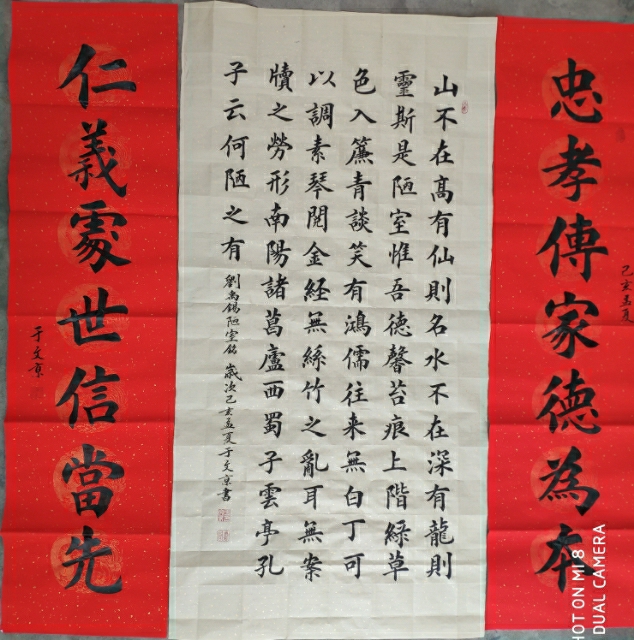 忠孝傳家德為本
己亥孟夏
山不在高有仙則名水不在深有龍則
靈斯是陋室惟吾德馨苔痕上階綠草
色入簾青談笑有鴻儒往来無白丁可
以調素琴閱金経無絲竹之亂耳無案
牘之勞形南陽諸葛廬西蜀子雲亭孔
子云何陋之有
劉禹錫陋室銘 歲次己亥孟夏于文京書
仁義處世信當先
于文京
SHOT ON MI 8
DUAL CAMERA